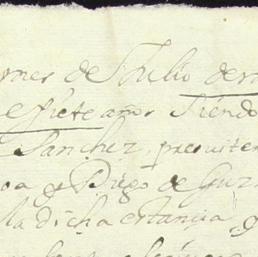 mes de Jhulio de m
e ssiete años siendo
Sanchez presuiter
oa y Diego de Guz
la dicha estançia y